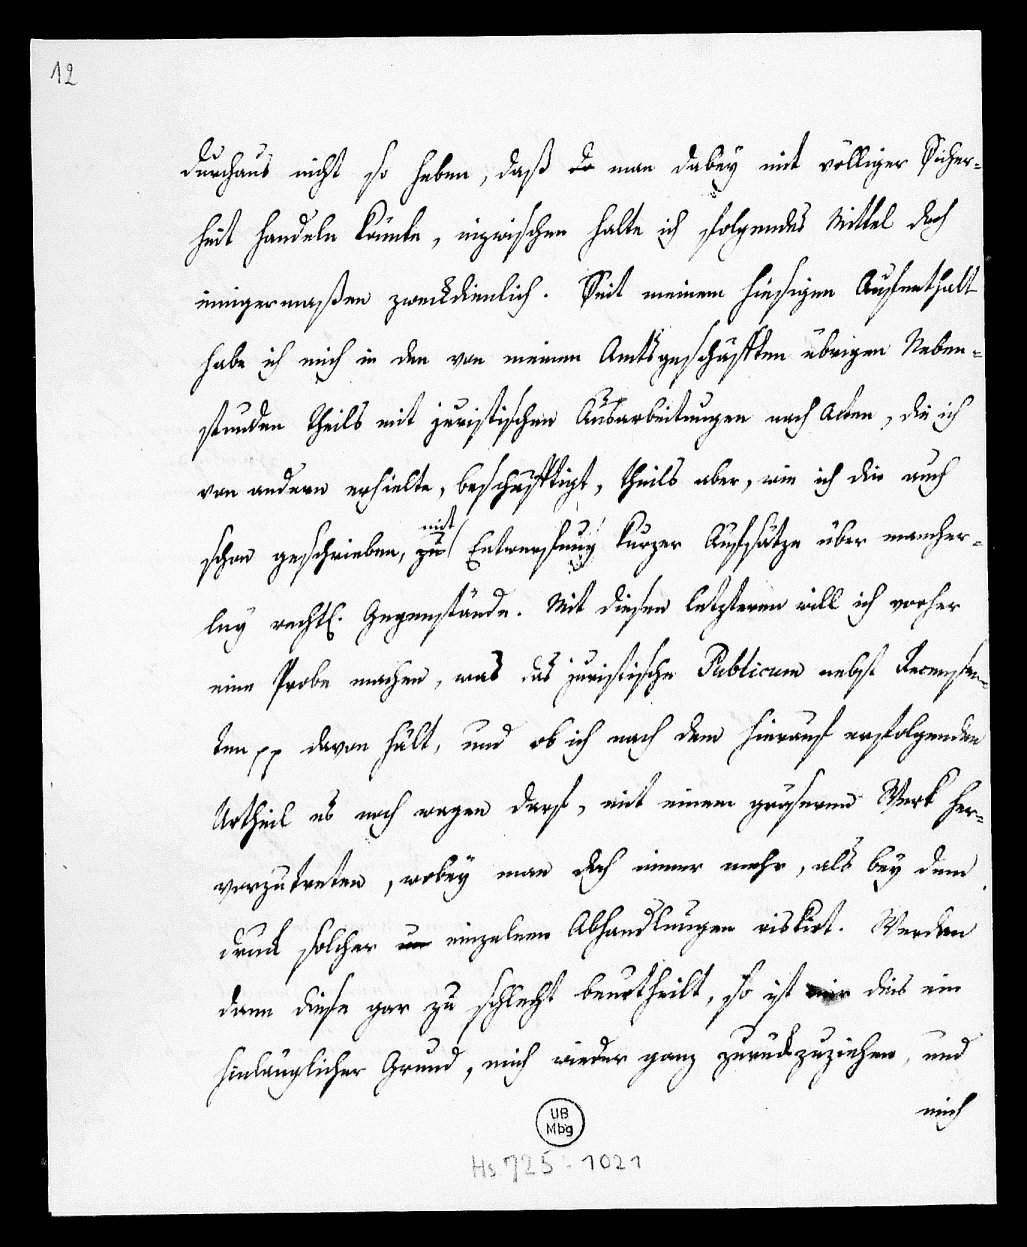 12
durchaus nicht so heben, daß do man dabey mit völliger Sicher-
heit handeln könnte, inzwischen halte ich folgendes Mittel doch
einigermaßen zweckdienlich. Seit meinem hiesigen Aufenthalt
habe ich mich in den von meinen Amtsgeschäfften übrigen Neben-
stunden theils mit juristischen Ausarbeitungen nach Acten, die ich
von andern erhielte, beschäfftigt, theils aber, wie ich dir auch
mit
schon geschrieben, zu Entwerfung kurzer Aufsätze über mancher-
ley rechtl. Gegenstände. Mit diesen letzteren will ich vorher
eine Probe machen, was das juristische Publicum nebst Recensen-
ten pp davon hält, und ob ich nach dem hierauf erfolgenden
Urtheil es noch wagen darf, mit einem gröserem Werk her-
vorzutreten, wobey man doch immer mehr, als bey dem
Druck solcher einzelnen Abhandlungen riskirt. Werden
dann diese gar zu schlecht beurtheilt, so ist mir dies ein
hinlänglicher Grund, mich wieder ganz zurückzuziehen, und
mich
UB
Mbg
Hs. 725:1021